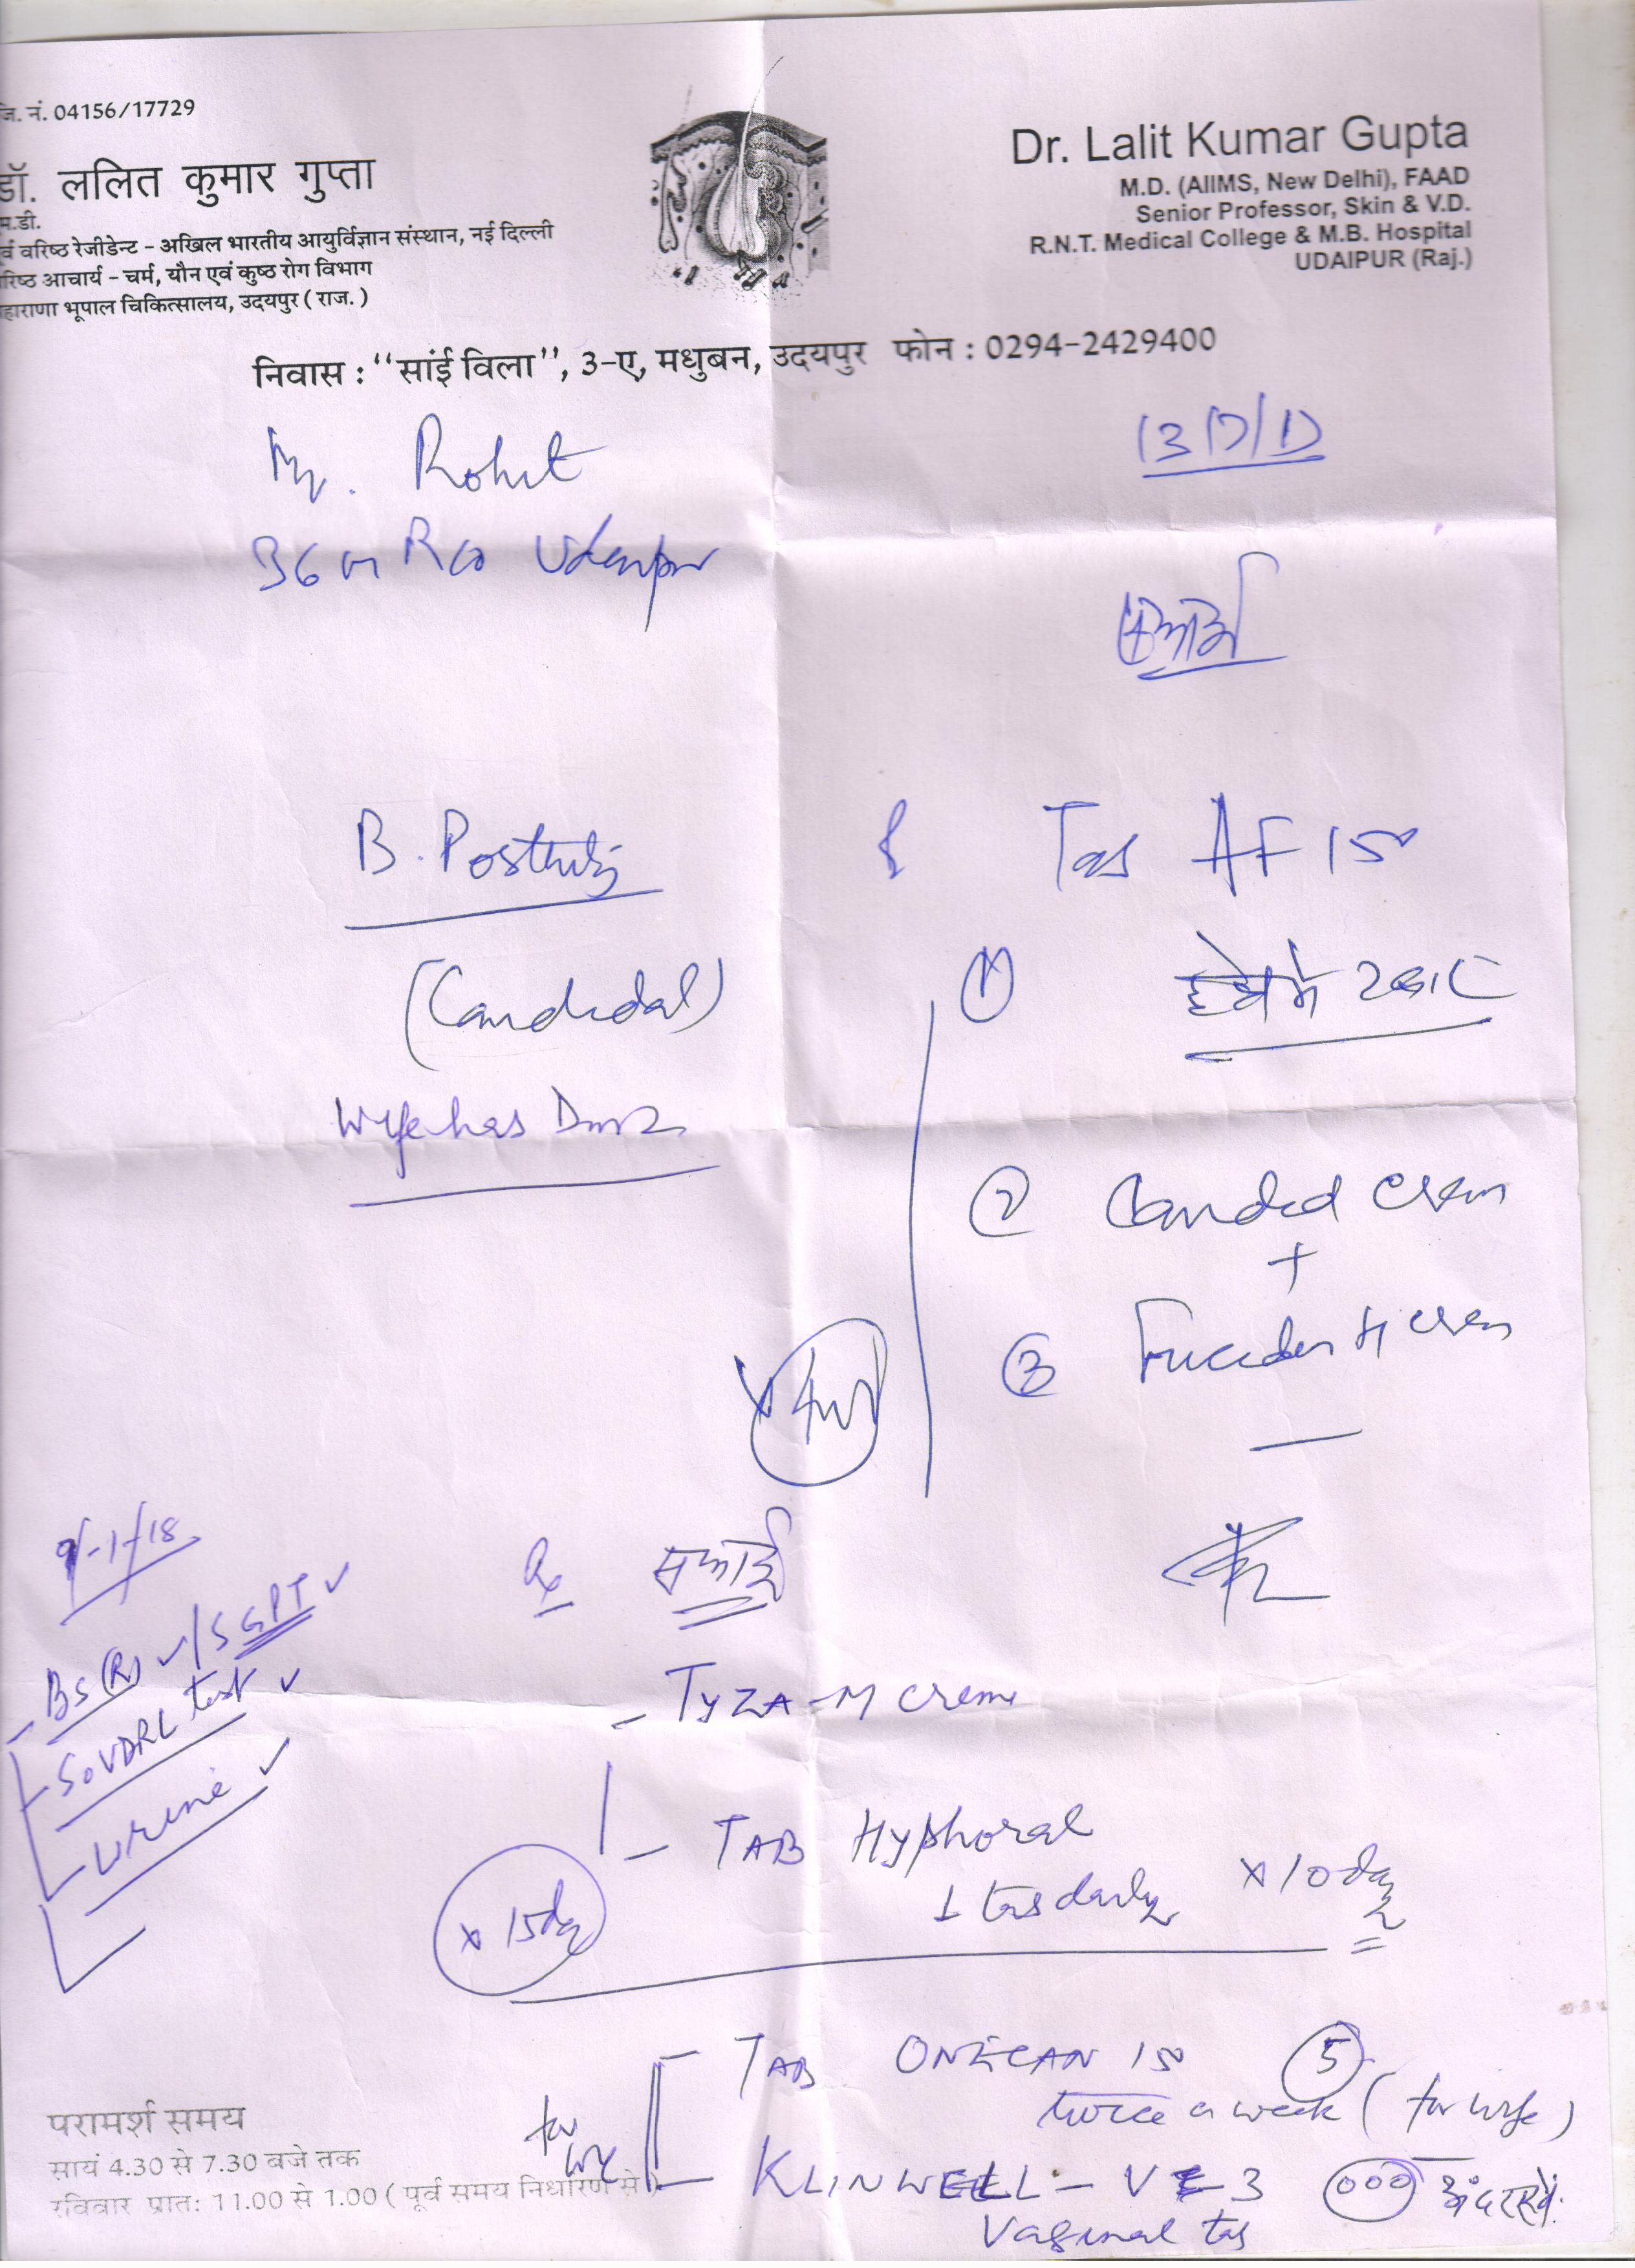 जि. नं. 04156/17729
डॉ. ललित कुमार गुप्ता
एम.डी.
पूर्व वरिष्ठ रेजीडेन्ट - अखिल भारतीय आयुर्विज्ञान संस्थान, नई दिल्ली
वरिष्ठ आचार्य - चर्म, यौन एवं कुष्ठ रोग विभाग
महाराणा भूपाल चिकित्सालय, उदयपुर ( राज. )
Dr. Lalit Kumar Gupta
M.D. (AIIMS, New Delhi), FAAD
Senior Professor, Skin & V.D.
R.N.T. Medical College & M.B. Hospital
UDAIPUR (Raj.)
निवास : ‘‘सांई विला’’, 3-ए, मधुबन, उदयपुर फोन : 0294-2429400
Mr. Rohit
36 R/o Udaipur
B. Posthitis
(Candidal)
Wife has
Tab AF 150
1
2 Candid cream
+
3 Fucidin H cream
9-1-18
BS (R) ✓/SGPT ✓
SoVDRL test ✓
Urine ✓
Rx सफाई
- TYZA-M creme
- TAB Hyphoral
1 tab daily x 10 day
x 15 day
TAB ONECAN 150 5
twice a week (for wife)
for wife
KLINWELL - V 3 अंदर रखें
Vaginal tab
परामर्श समय
सायं 4.30 से 7.30 बजे तक
रविवार प्रात: 11.00 से 1.00 ( पूर्व समय निर्धारण से )